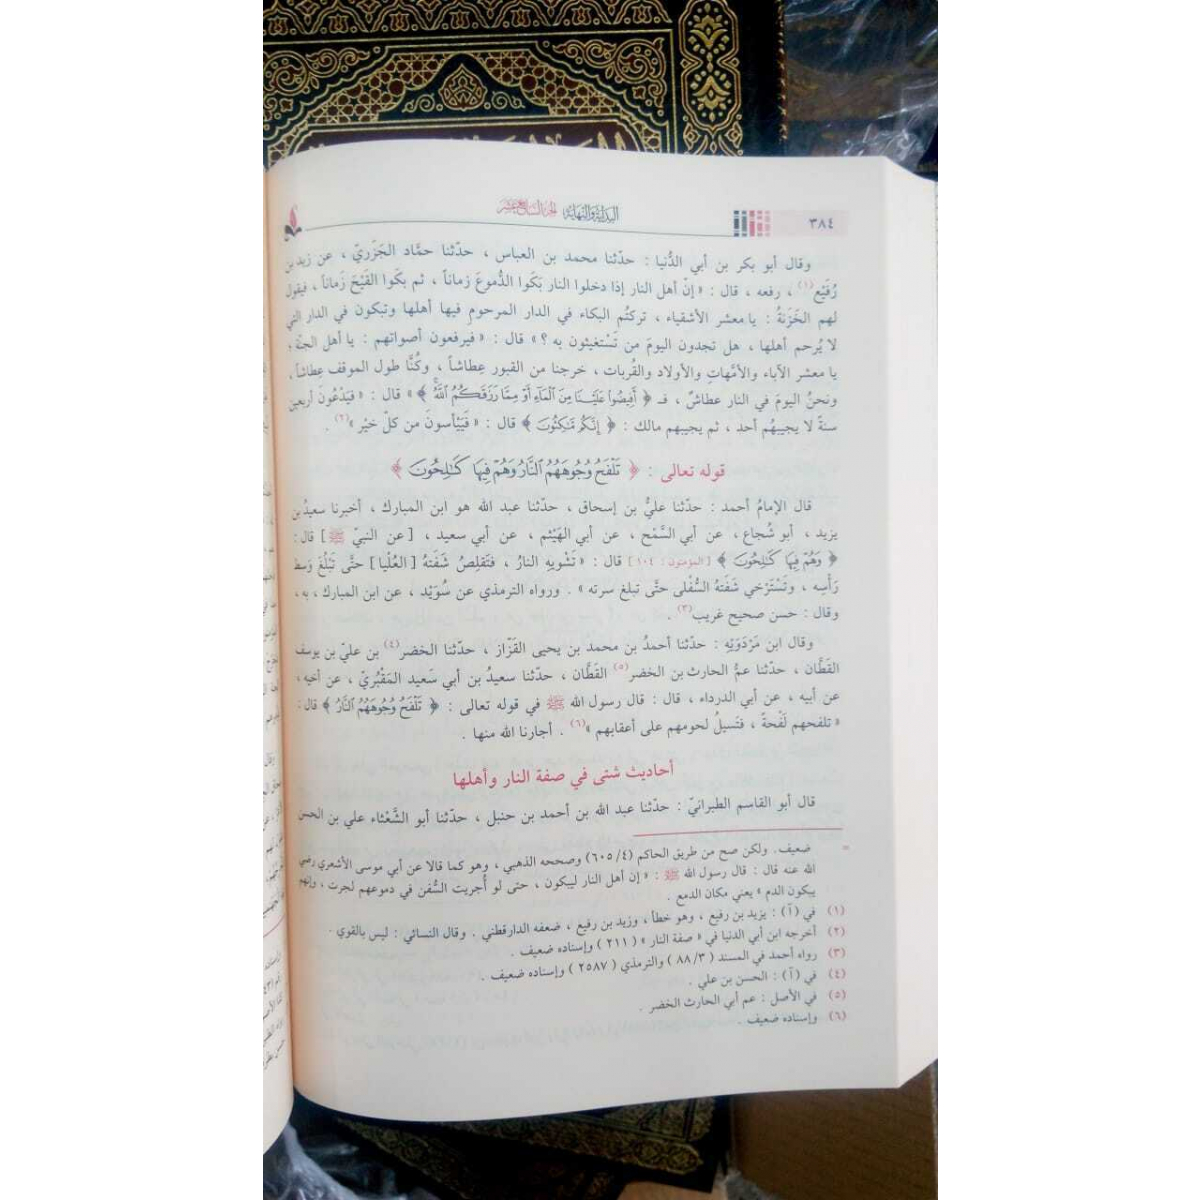 ٣٨٤
البداية والنهاية الجزء السابع عشر
وقال أبو بكر بن أبي الدُّنيا : حدّثنا محمد بن العباس ، حدّثنا حمَّاد الجَزَريّ ، عن زيد بن
رُفَيْع(١) ، رفعه ، قال : « إنّ أهل النار إذا دخلوا النار بَكَوا الدُّموعَ زماناً ، ثم بكَوا القَيْحَ زَماناً ، فيقول
لهم الخَزَنةُ : يا معشر الأشقياء ، تركتُم البكاء في الدار المرحومِ فيها أهلها وتبكون في الدار التي
لا يُرحم أهلها ، هل تجدون اليومَ من تَسْتغيثون به ؟ » قال : « فيرفعون أصواتهم : يا أهل الجنّة ،
يا معشر الآباء والأمَّهاتِ والأولاد والقُربات ، خرجنا من القبور عِطاشاً ، وكُنَّا طول الموقف عِطاشاً ،
ونحنُ اليومَ في النار عطاشٌ ، فـ ﴿ أَفِيضُوا عَلَيْنَا مِنَ الْمَاءِ أَوْ مِمَّا رَزَقَكُمُ اللَّهُ ﴾ » قال : « فيَدْعُون أربعين
سنةً لا يجيبهُم أحد ، ثم يجيبهم مالك : ﴿ إِنَّكُم مَّاكِثُونَ ﴾ قال : « فَيَيْأسونَ من كلّ خيْر »(٢) .
قوله تعالى : ﴿ تَلْفَحُ وُجُوهَهُمُ النَّارُ وَهُمْ فِيهَا كَالِحُونَ ﴾
قال الإمامُ أحمد : حدّثنا عليُّ بن إسحاق ، حدّثنا عبد الله هو ابن المبارك ، أخبرنا سعيدُ بن
يزيد ، أبو شُجاع ، عن أبي السَّمْح ، عن أبي الهَيْثم ، عن أبي سعيد ، [ عن النبيّ ﷺ ] قال :
﴿ وَهُمْ فِيهَا كَالِحُونَ ﴾ [المؤمنون : ١٠٤] قال : « تَشْويه النارُ ، فتَقلِصُ شَفَتهُ [ العُلْيا ] حتَّى تَبْلُغَ وَسط
رَأْسِه ، وتَسْتَرْخي شَفَتهُ السُّفْلى حتَّى تبلغ سرته » . ورواه الترمذي عن سُوَيْد ، عن ابن المبارك ، به ،
وقال : حسن صحيح غريب(٣) .
وقال ابن مَرْدَوَيْهِ : حدّثنا أحمدُ بن محمد بن يحيى القَزّاز ، حدّثنا الخضر(٤) بن عليّ بن يوسف
القَطَّان ، حدّثنا عمُّ الحارث بن الخضر(٥) القَطَّان ، حدّثنا سعيدُ بن أبي سَعيد المَقْبُريّ ، عن أخيه ،
عن أبيه ، عن أبي الدرداء ، قال : قال رسول الله ﷺ في قوله تعالى : ﴿ تَلْفَحُ وُجُوهَهُمُ النَّارُ ﴾ قال :
« تلفحهم لَفْحةً ، فتَسيلُ لحومهم على أعقابهم »(٦) . أجارنا الله منها .
أحاديث شتى في صفة النار وأهلها
قال أبو القاسم الطبرانيّ : حدّثنا عبد الله بن أحمد بن حنبل ، حدّثنا أبو الشَّعْثاء علي بن الحسن
= ضعيف. ولكن صح من طريق الحاكم (٦٠٥/٤) وصححه الذهبي ، وهو كما قالا عن أبي موسى الأشعري رضي
الله عنه قال : قال رسول الله ﷺ : « إن أهل النار ليبكون ، حتى لو أُجريت السُّفن في دموعهم لجرت ، وإنهم
يبكون الدم » يعني مكان الدمع .
(١) في (آ) : يزيد بن رفيع ، وهو خطأ ، وزيد بن رفيع ، ضعفه الدارقطني . وقال النسائي : ليس بالقوي .
(٢) أخرجه ابن أبي الدنيا في « صفة النار » ( ٢١١ ) وإسناده ضعيف .
(٣) رواه أحمد في المسند ( ٨٨/٣ ) والترمذي ( ٢٥٨٧ ) وإسناده ضعيف .
(٤) في (آ) : الحسن بن علي .
(٥) في الأصل : عم أبي الحارث الخضر .
(٦) وإسناده ضعيف .